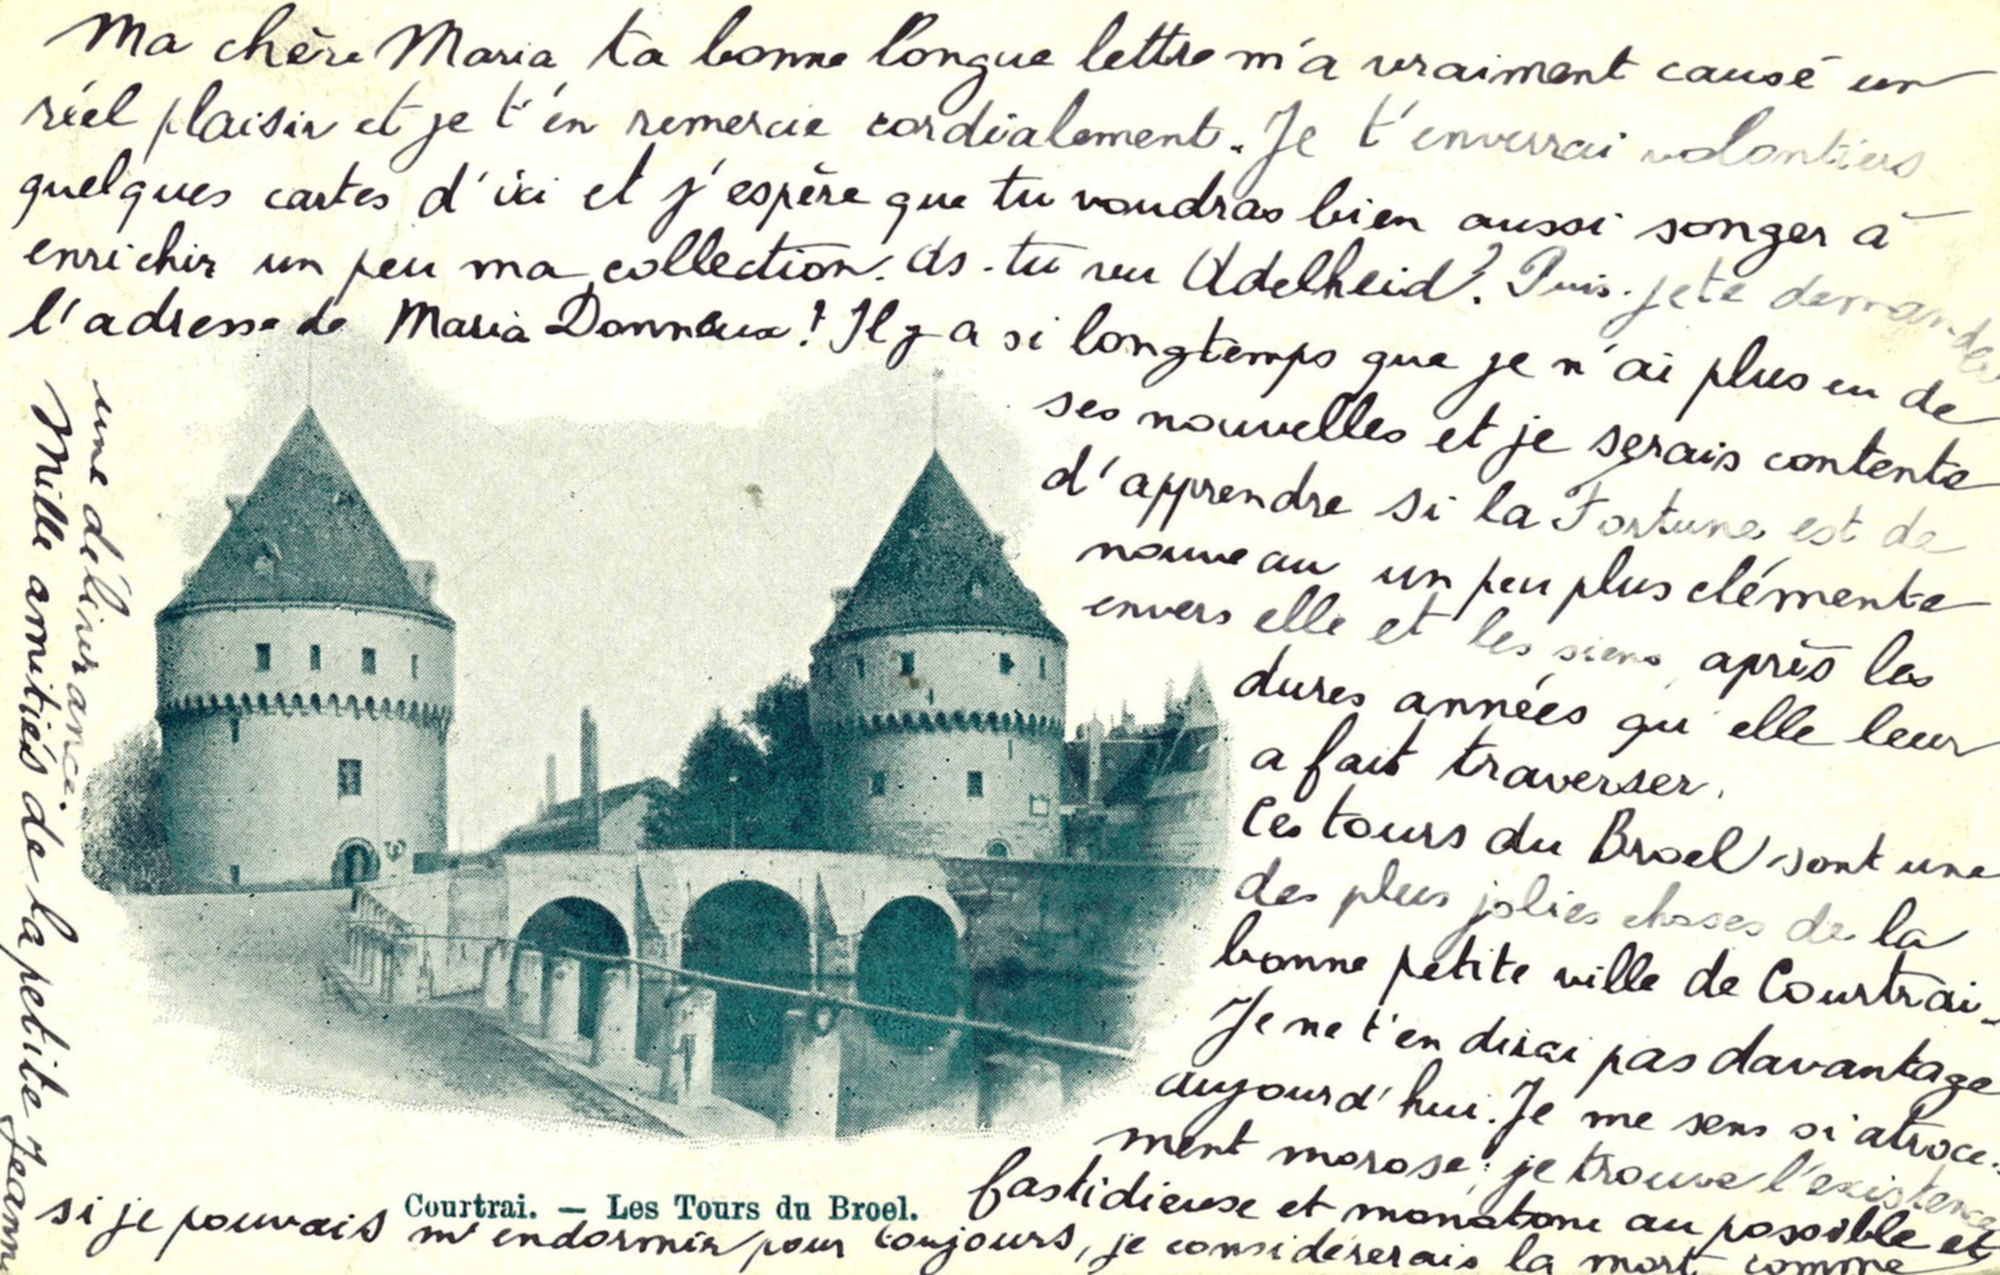 Ma chère Maria ta bonne longue lettre m'a vraiment causé un
réel plaisir et je t'en remercie cordialement. Je t'enverrai volontiers
quelques cartes d'ici et j'espère que tu voudras bien aussi songer à
enrichir un peu ma collection. As-tu vu Adelheid? Puis-je te demander
l'adresse de Maria Donneux! Il y a si longtemps que je n'ai plus eu de
ses nouvelles et je serais contente
d'apprendre si la Fortune est de
nouveau un peu plus clémente
envers elle et les siens, après les
dures années qu'elle leur
a fait traverser.
Ces tours du Broel sont une
des plus jolies choses de la
bonne petite ville de Courtrai.
Je ne t'en dirai pas davantage
aujourd'hui. Je me sens si atroce-
ment morose; je trouve l'existence
fastidieuse et monotone au possible et
si je pouvais m'endormir pour toujours, je considérerais la mort comme
une délivrance.
Mille amitiés de la petite Jeanne
Courtrai. — Les Tours du Broel.